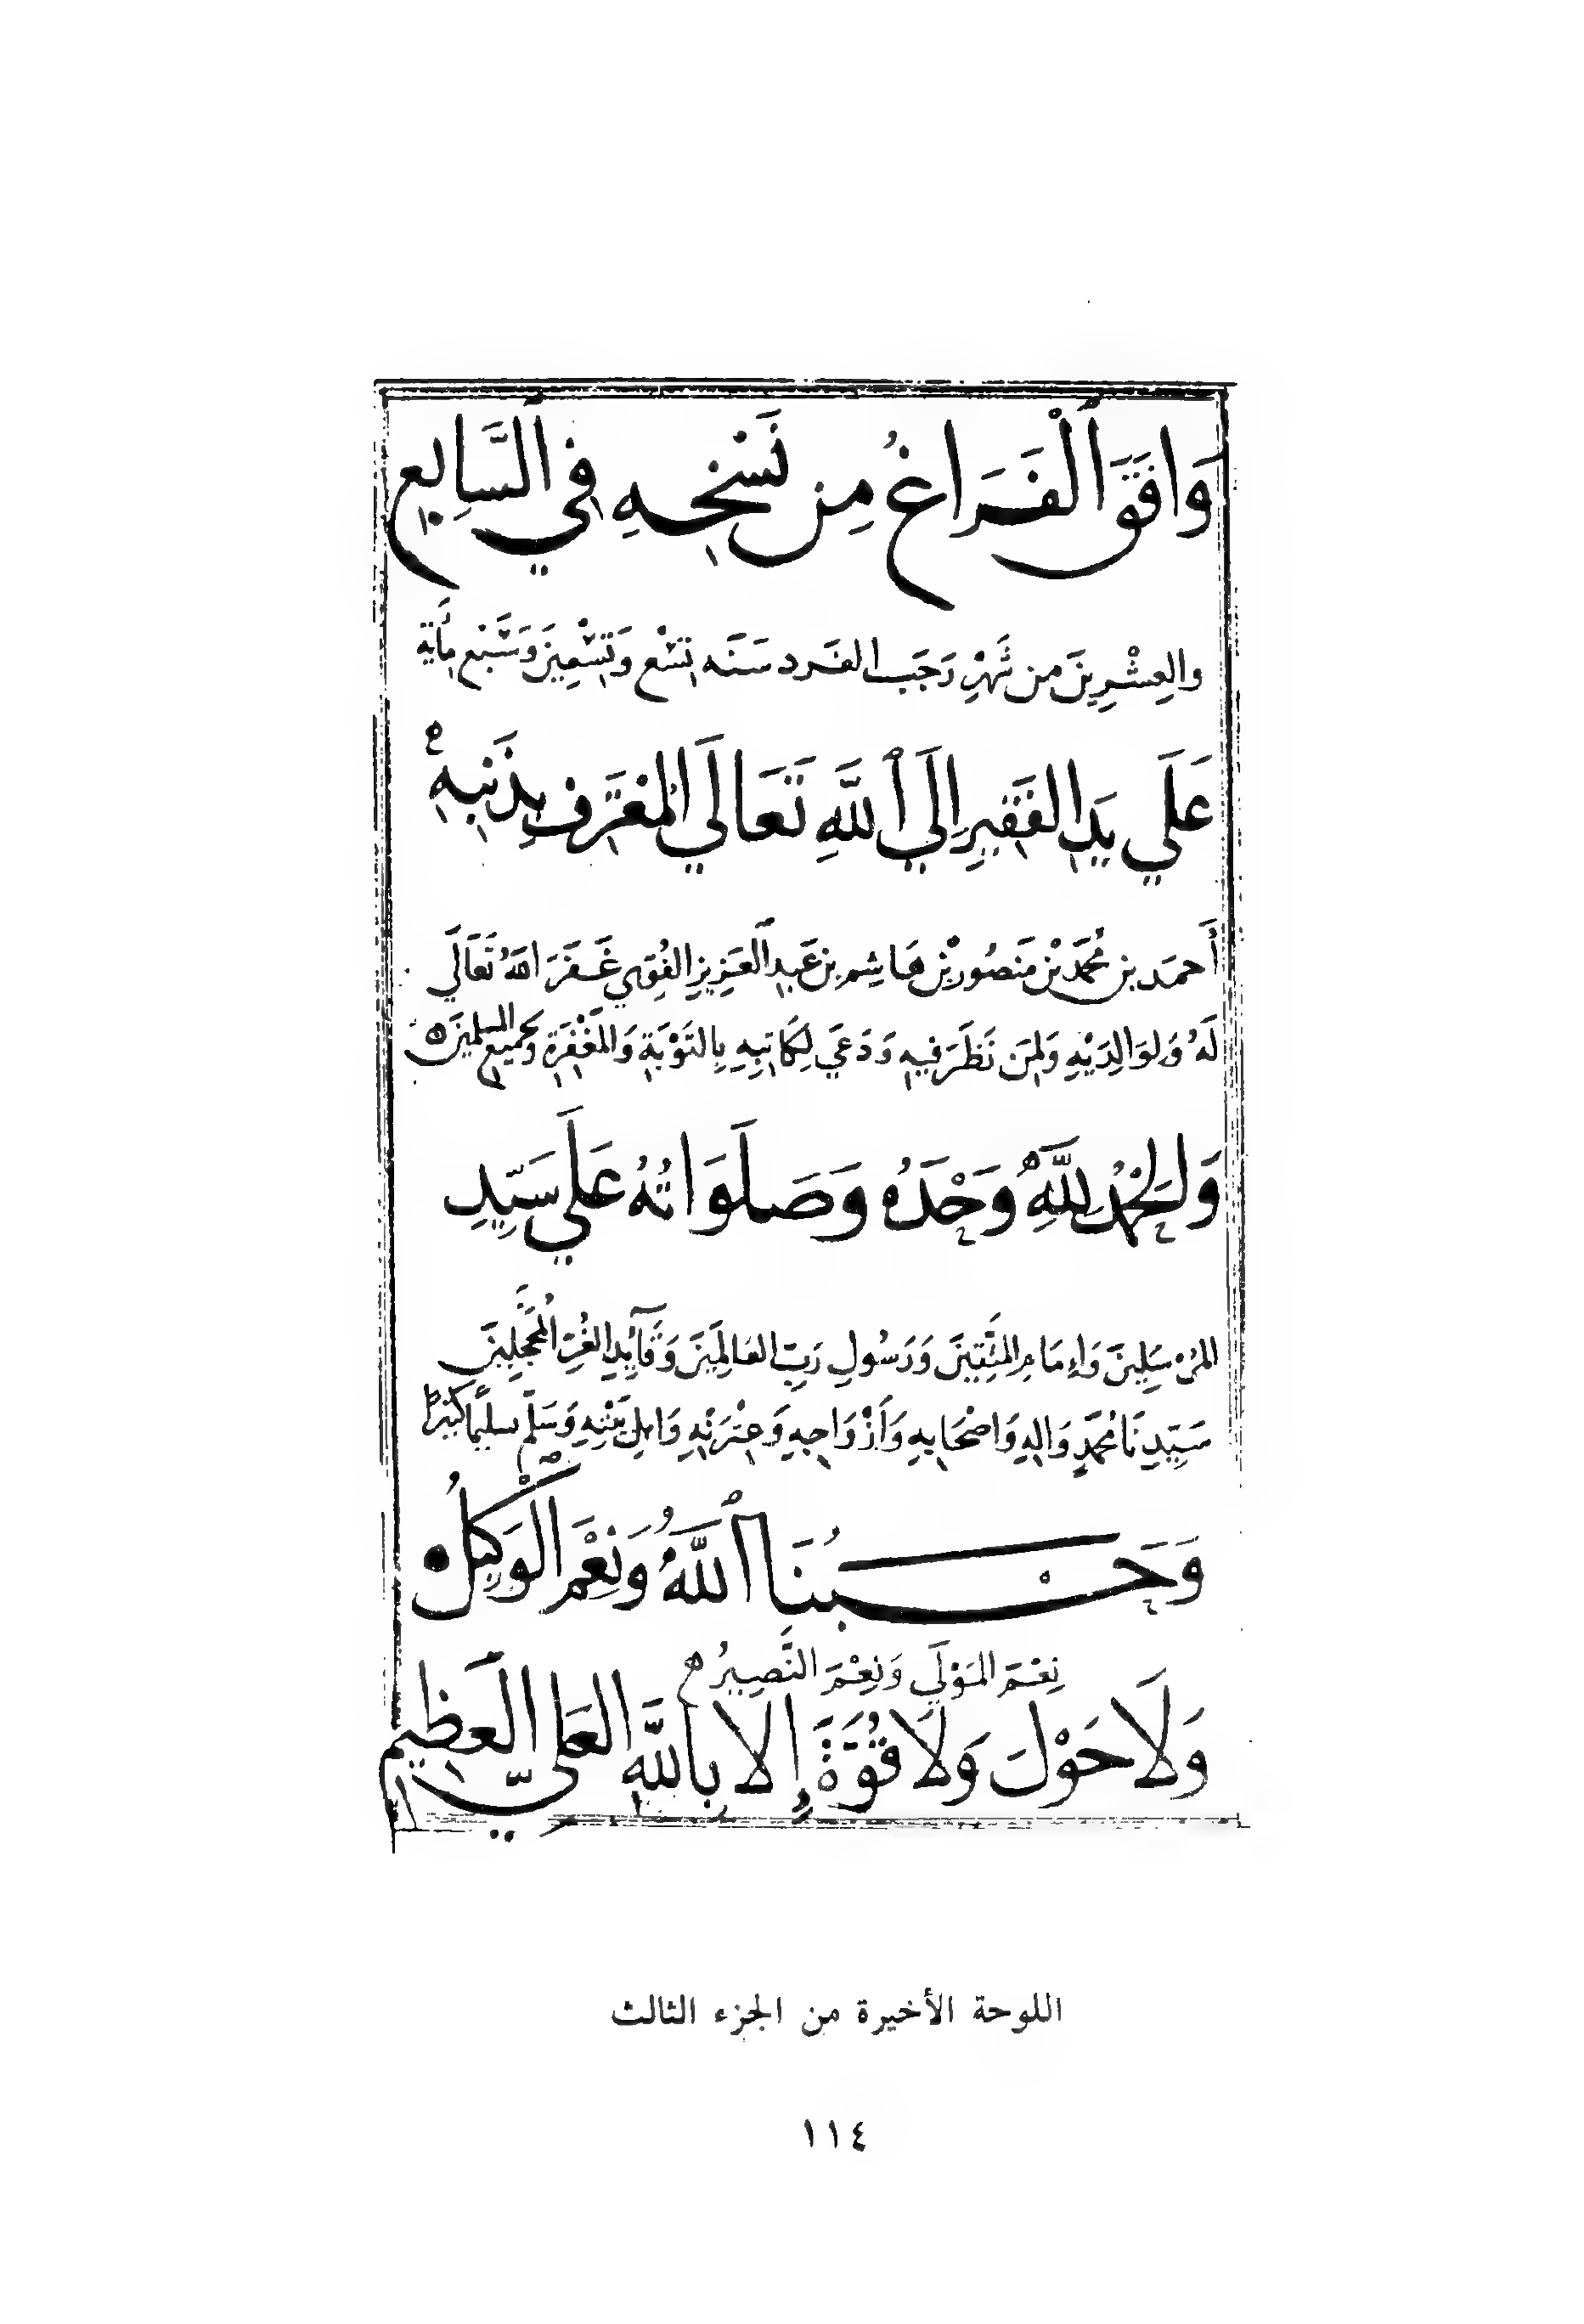 وَافَقَ ٱلْفَرَاغُ مِن نَسْخِهِ فِي ٱلسَّابِعِ
والعِشْرِينَ من شَهْرِ رَجَب الفَرد سَنَه تِسْعٍ وَتِسْعِينَ وَسَبْعِ مِأيَةٍ
عَلَي يَدِ الفَقِيرِ إِلَي ٱللَّهِ تَعَالَي المُعْتَرِفِ بِذَنْبِهِ
أَحمَد بن مُحَمَّد بْن مَنصُور بْن هَاشِم بن عَبدِ ٱلعَزِيزِ الفُقِهي غَفَرَ اللهُ تَعَالَي
لَهُ وَلوَالِدَيْهِ وَلِمَن نَظَرَ فِيهِ وَدَعَي لِكَاتِبِهِ بِالتَوْبَةِ وَالمَغْفِرَةِ وَلجميع المسلمينَ
وَلحَمْدُ لِلَّهِ وَحْدَهُ وَصَلَوَاتُهُ عَلَي سَيِّدِ
المُرْسَلِينَ وَإِمَامِ المُتَّقِينَ وَرَسُولِ رَبِّ العَالَمِينَ وَقَآئِدِ الغُرِّ المُحَجَّلِينَ
سَيِّدِنَا مُحَمَّدٍ وَالِهِ وَاصْحَابِهِ وَأَزْوَاجِهِ وَعِتْرَتِهِ وَاهلِ بَيْتِهِ وَسَلَّم تسليمًا كثيرًا
وَحَسْبُنَا ٱللَّهُ وَنِعْمَ الْوَكِيلُ
نِعْمَ المَوْلَي وَنِعْمَ النَّصِيرُ
وَلَا حَوْلَ وَلَا قُوَّةَ إِلا بِاللَّهِ العَلِيِّ العَظِيمِ
اللوحة الأخيرة من الجزء الثالث
١١٤